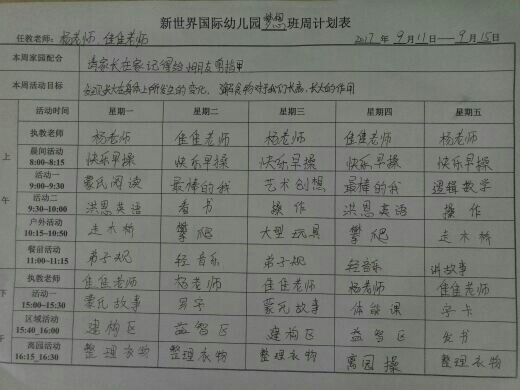 新世界国际幼儿园梦想班周计划表
任教老师: 杨老师 佳佳老师 2017 年 9月11日——9月15日
本周家园配合 请家长在家记得给小朋友剪指甲
本周活动目标 发现长大在身体上所发生的变化, 了解食物对我们长高、长大的作用
活动时间 星期一 星期二 星期三 星期四 星期五
上午
执教老师 杨老师 佳佳老师 杨老师 佳佳老师 杨老师
晨间活动 8:00~8:15 快乐早操 快乐早操 快乐早操 快乐早操 快乐早操
活动一 9:00~9:30 蒙氏阅读 最棒的我 艺术创想 最棒的我 逻辑数学
活动二 9:30~10:00 洪恩英语 看书 操作 洪恩英语 操作
户外活动 10:15~10:50 走木桥 攀爬 大型玩具 攀爬 走木桥
餐前活动 11:00~11:15 弟子规 轻音乐 弟子规 轻音乐 讲故事
下午
执教老师 佳佳老师 杨老师 佳佳老师 杨老师 佳佳老师
活动一 15:00~15:30 蒙氏故事 写字 蒙氏故事 体能课 字卡
区域活动 15:40_16:00 建构区 益智区 建构区 益智区 看书
离园活动 16:15_16:30 整理衣物 整理衣物 整理衣物 离园操 整理衣物